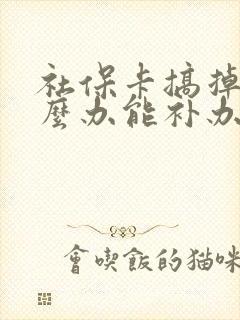 社保卡搞掉
麼办能补办
會喫飯的猫咪